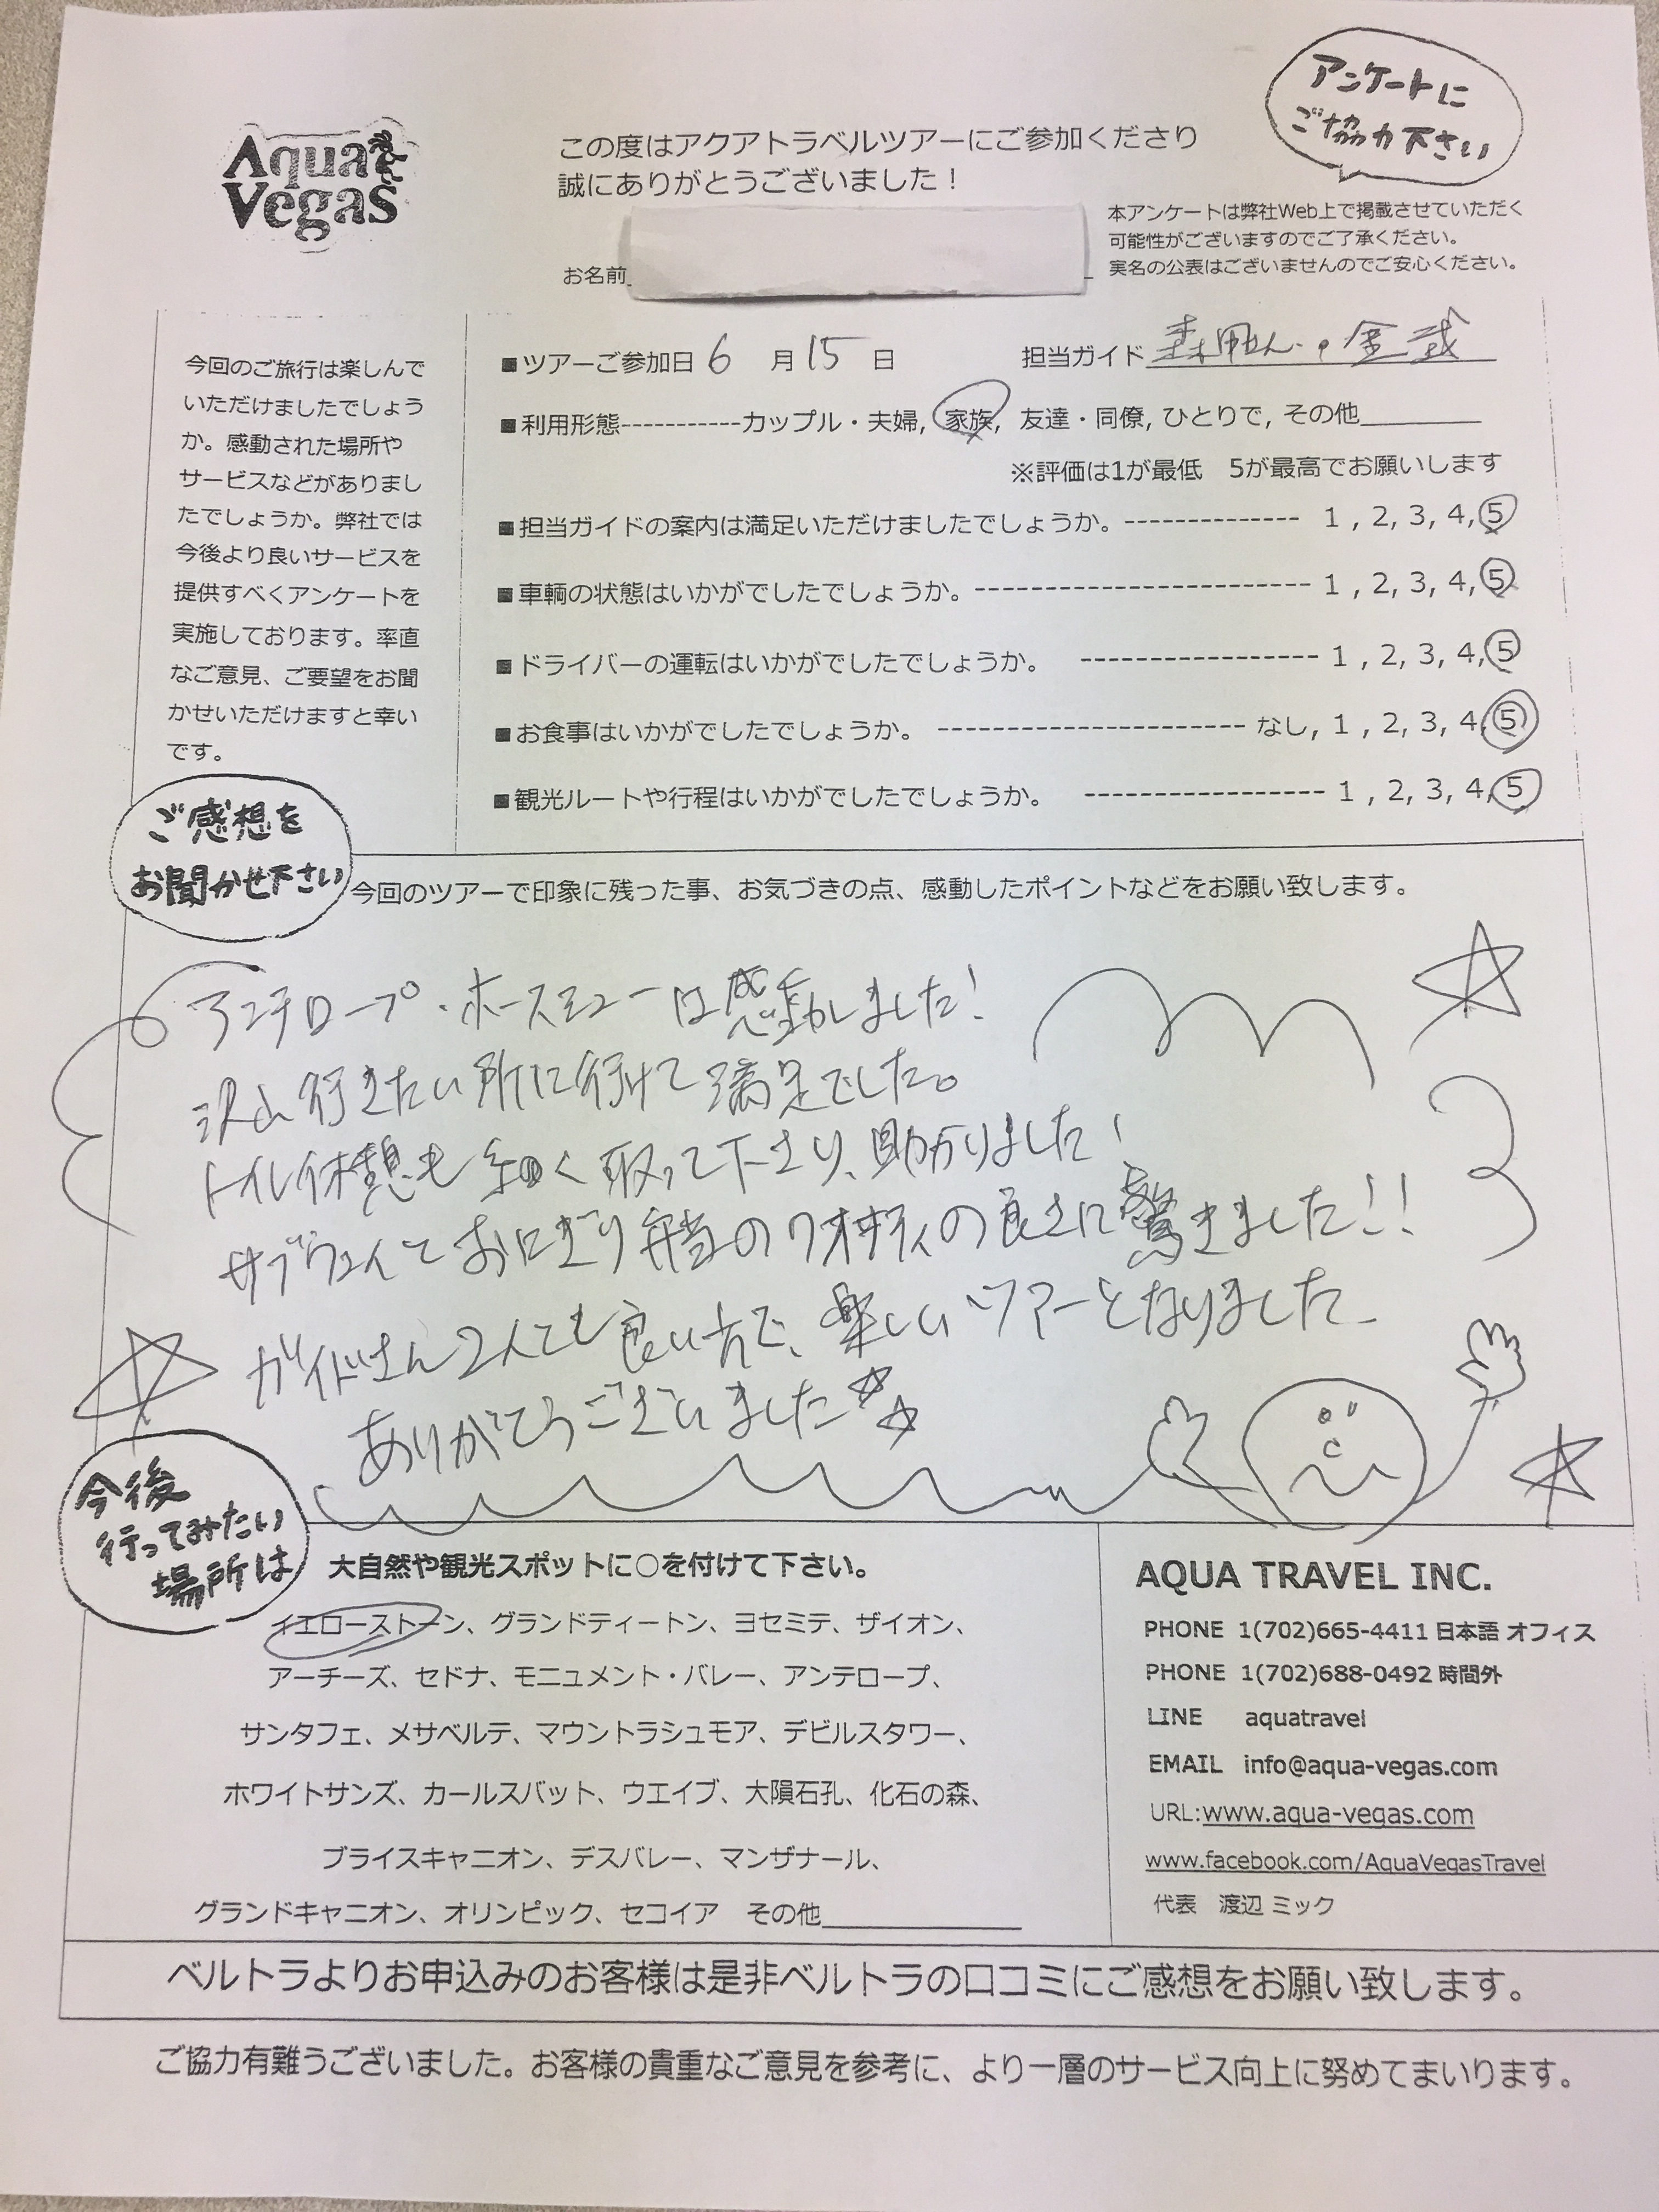 アンケートに
ご協力下さい
Aqua
Vegas
この度はアクアトラベルツアーにご参加くださり
誠にありがとうございました！
本アンケートは弊社Web上で掲載させていただく
可能性がございますのでご了承ください。
実名の公表はございませんのでご安心ください。
お名前
今回のご旅行は楽しんで
いただけましたでしょう
か。感動された場所や
サービスなどがありまし
たでしょうか。弊社では
今後より良いサービスを
提供すべくアンケートを
実施しております。率直
なご意見、ご要望をお聞
かせいただけますと幸い
です。
■ツアーご参加日 6 月 15 日 担当ガイド
■利用形態-----------カップル・夫婦, 家族, 友達・同僚, ひとりで, その他
※評価は1が最低 5が最高でお願いします
■担当ガイドの案内は満足いただけましたでしょうか。-------------- 1 , 2, 3, 4, 5
■車輌の状態はいかがでしたでしょうか。----------------------- 1 , 2, 3, 4, 5
■ドライバーの運転はいかがでしたでしょうか。 ----------------- 1 , 2, 3, 4, 5
■お食事はいかがでしたでしょうか。 ---------------------- なし, 1 , 2, 3, 4, 5
■観光ルートや行程はいかがでしたでしょうか。 ----------------- 1 , 2, 3, 4, 5
ご感想を
お聞かせ下さい
今回のツアーで印象に残った事、お気づきの点、感動したポイントなどをお願い致します。
アンテロープ・ホースシューは感動しました！
沢山行きたい所に行けて満足でした。
トイレ休憩も細く取って下さり、助かりました！
サブウェイとおにぎり弁当のクオリティの良さに驚きました！！
ガイドさん2人とも良い方で、楽しいツアーとなりました
ありがとうございました☆☆
今後
行ってみたい
場所は
大自然や観光スポットに○を付けて下さい。
イエローストーン、グランドティートン、ヨセミテ、ザイオン、
アーチーズ、セドナ、モニュメント・バレー、アンテロープ、
サンタフェ、メサベルテ、マウントラシュモア、デビルスタワー、
ホワイトサンズ、カールスバット、ウエイブ、大隕石孔、化石の森、
ブライスキャニオン、デスバレー、マンザナール、
グランドキャニオン、オリンピック、セコイア その他
AQUA TRAVEL INC.
PHONE 1(702)665-4411 日本語 オフィス
PHONE 1(702)688-0492 時間外
LINE aquatravel
EMAIL info@aqua-vegas.com
URL:www.aqua-vegas.com
www.facebook.com/AquaVegasTravel
代表 渡辺 ミック
ベルトラよりお申込みのお客様は是非ベルトラの口コミにご感想をお願い致します。
ご協力有難うございました。お客様の貴重なご意見を参考に、より一層のサービス向上に努めてまいります。